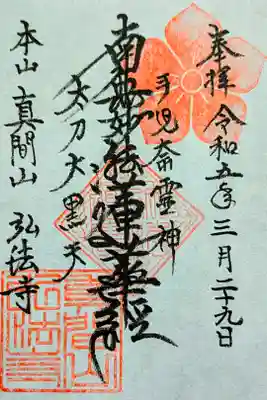 奉拝 令和五年 三月二十九日
手児奈霊神
南無妙法蓮華経
太刀大黒天
本山 真間山 弘法寺